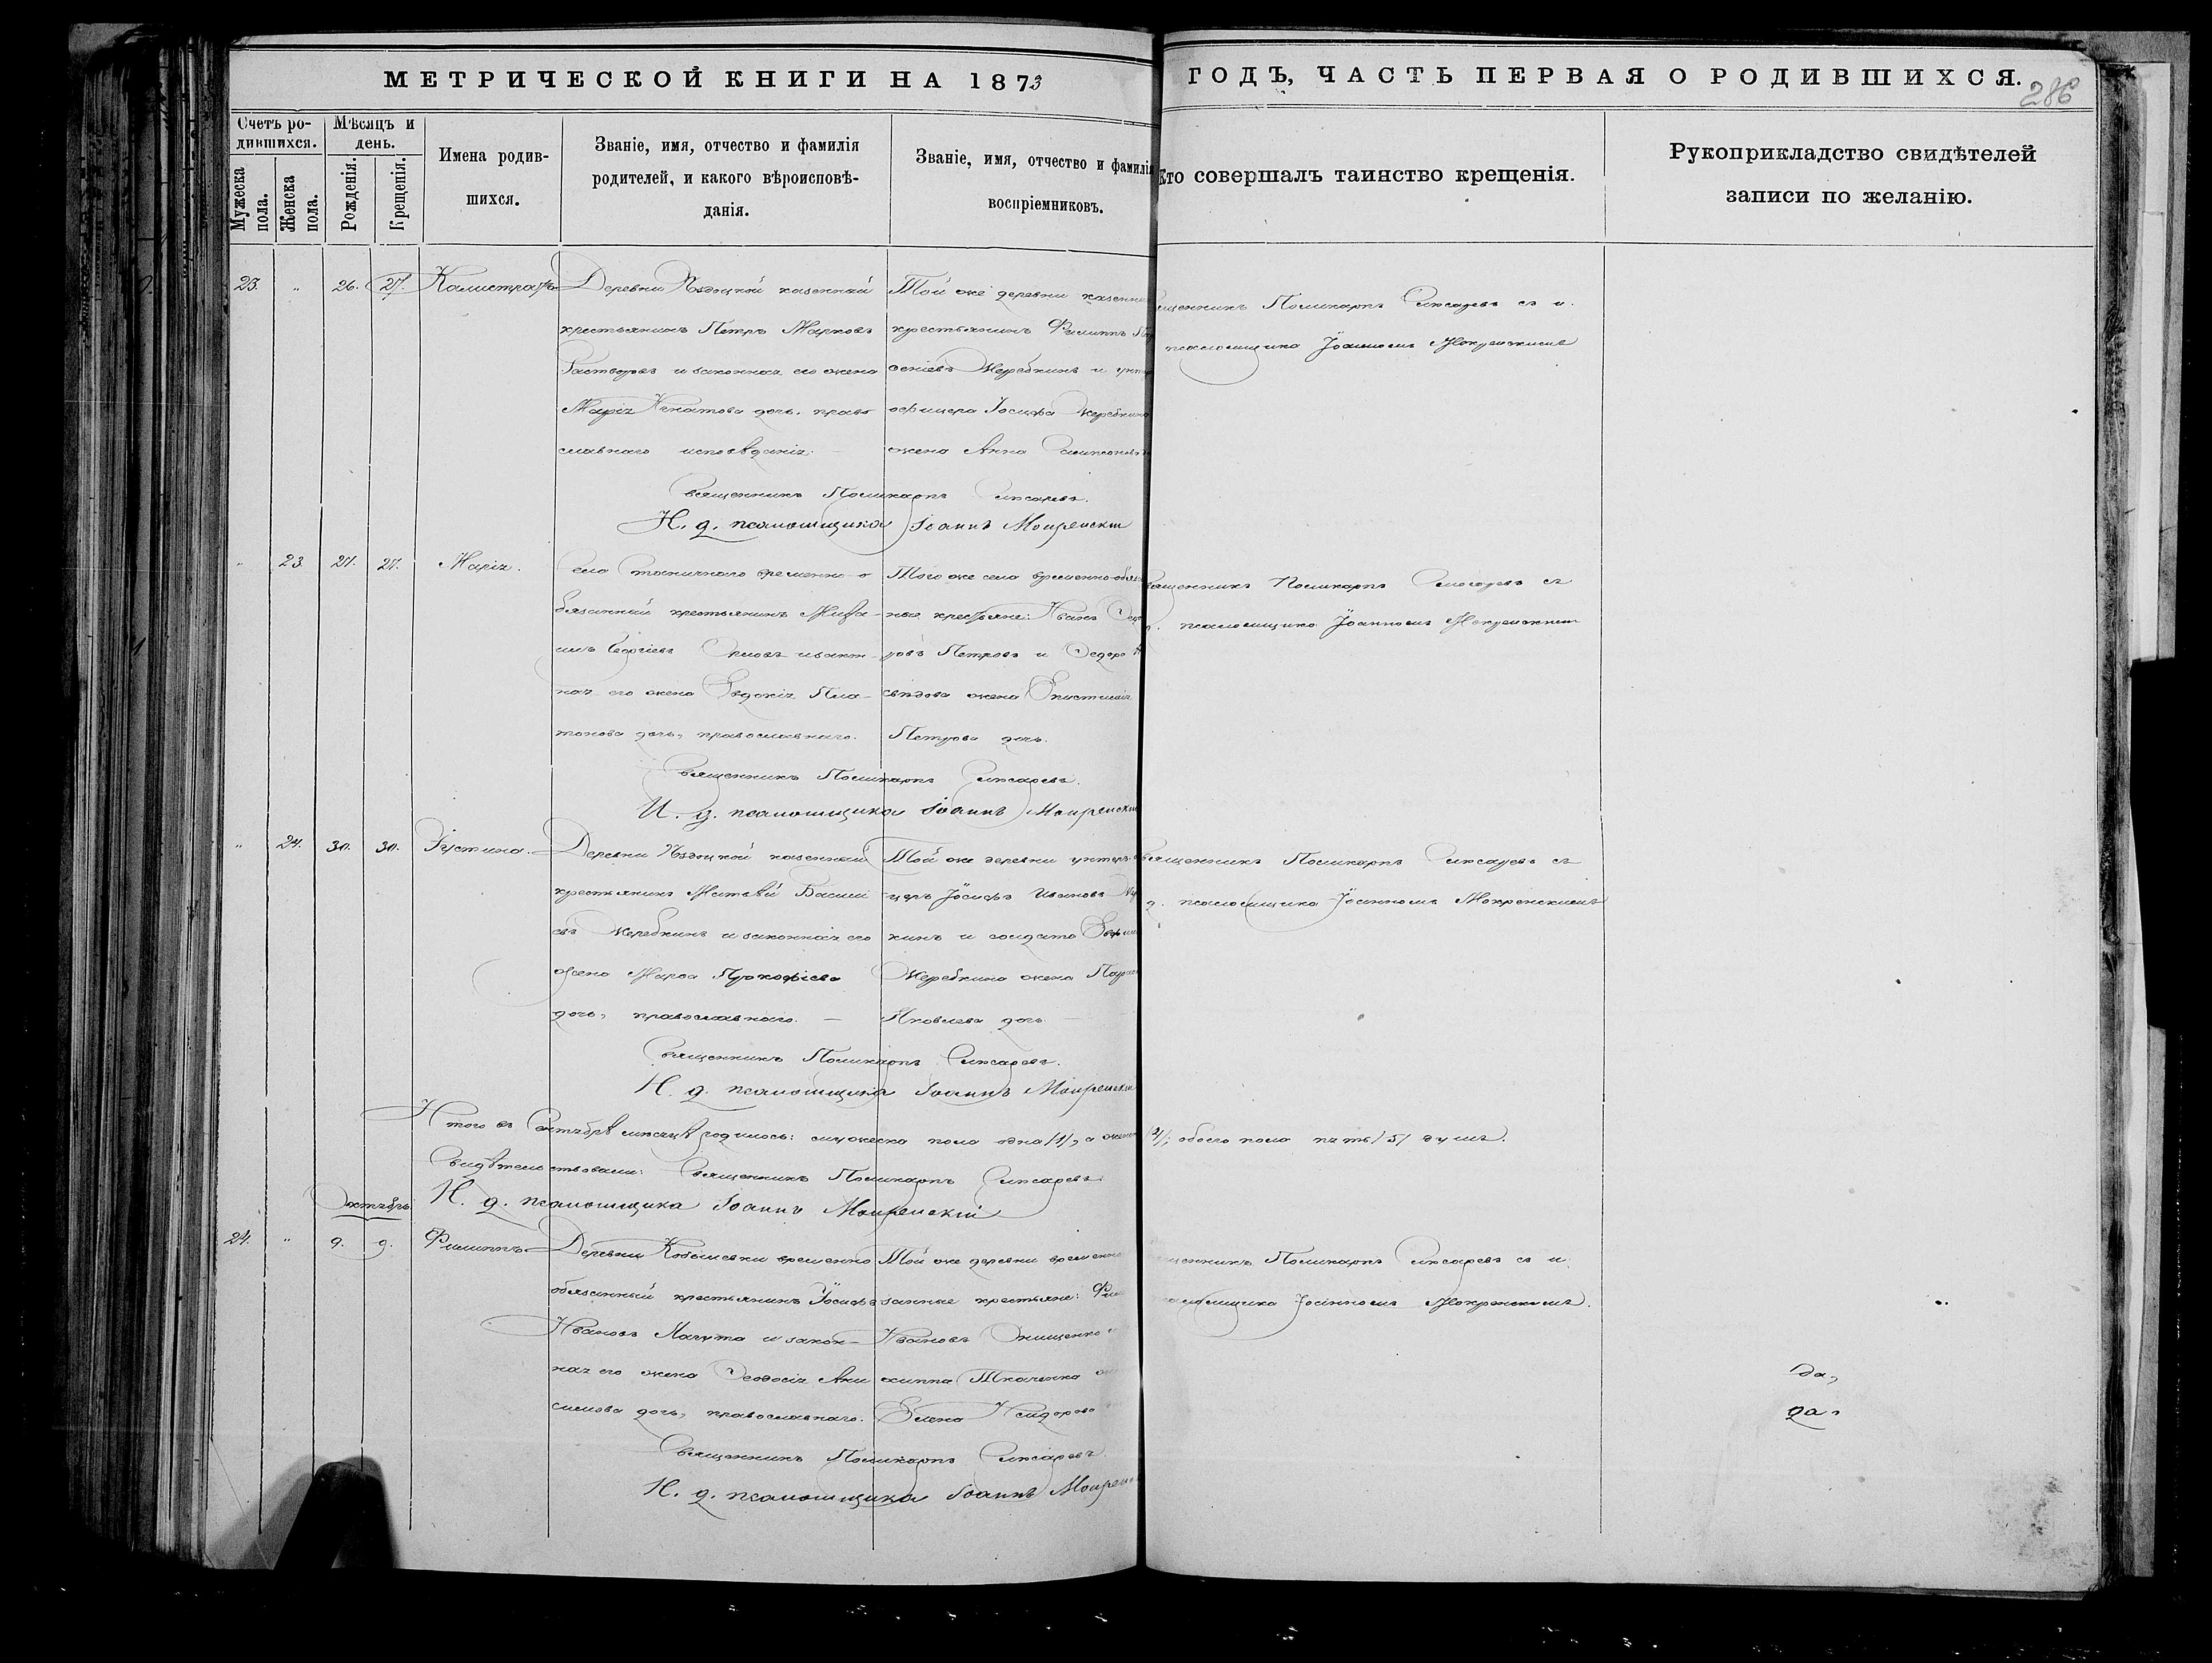 МЕТРИЧЕСКОЙ КНИГИ НА 1873
ГОДЪ, ЧАСТЬ ПЕРВАЯ О РОДИВШИХСЯ.
286
Счетъ ро-
дившихся.
Мужеска
пола.
Женска
пола.
Мѣсяцъ и
день.
Рожденія.
Крещенія.
Имена родив-
шихся.
Званіе, имя, отчество и фамилія
родителей, и какого вѣроисповѣ-
данія.
Званіе, имя, отчество и фамилія
воспріемниковъ.
Кто совершалъ таинство крещенія.
Рукоприкладство свидѣтелей
записи по желанію.
23. " 26. 27.
Деревни казенный
крестьянинъ Петръ Марковъ
и законная его жена
Марія Игнатова дочь, право
славнаго исповѣданія.
Той же деревни казенны
крестьянинъ Филиппъ
Жеребкинъ и унте
офицера Іосифа Жеребкина
жена Анна
священникъ Поликарпъ съ и.
псаломщика Іоанномъ Мокренскимъ
Священникъ Поликарпъ
И. д. псаломщика Іоаннъ Мокренскі
" 23 27. 27. Марія.
Села временно-о
бязанный крестьянинъ
Георгіевъ и закон-
ная его жена Евдокія Пла-
тонова дочь, православнаго.
Того же села временно-обяза
ные крестьяне: Иванъ
Петровъ и
жена Епистимія
Петрова дочь.
вященникъ Поликарпъ съ
псаломщика Іоанномъ Мокренскимъ
Священникъ Поликарпъ
И. д. псаломщика Іоаннъ Мокренскі
" 24. 30. 30. Устина.
Деревни казенный
крестьянинъ Матвѣй Васильѣ
въ Жеребкинъ и законная его
жена Марфа Прокофіева
дочь, православнаго. —
Той же деревни унтеръ-о
церъ Іосифъ Ивановъ Же
кинъ и солдата
Жеребкина жена Парас
Яковлева дочь
вященникъ Поликарпъ съ
д. псаломщика Іоанномъ Мокренскимъ
Священникъ Поликарпъ
И. д. псаломщика Іоаннъ Мокренскі
Итого въ Сентябрѣ мѣсяцѣ родилось: мужеска пола одна /1/, а женск /4/; обоего пола пять /5/ душъ.
Свидѣтельствовали: Священникъ Поликарпъ
И. д. псаломщика Іоаннъ Мокренскій
Октябрь
24. " 9. 9. Филиппъ
Деревни Кобылевки временно
обязанный крестьянинъ Іосифъ
Ивановъ Лагута и закон-
ная его жена Ѳеодосія Ани
симова дочь, православнаго.
Той же деревни временно
занные крестьяне:
Ивановъ Онищенко и
хиппа Ткаченка
Елена Исидорова
щенникъ Поликарпъ съ и.
псаломщика Іоанномъ Мокренскимъ.
Да,
да,
Священникъ Поликарпъ
И. д. псаломщика Іоаннъ Мокренс